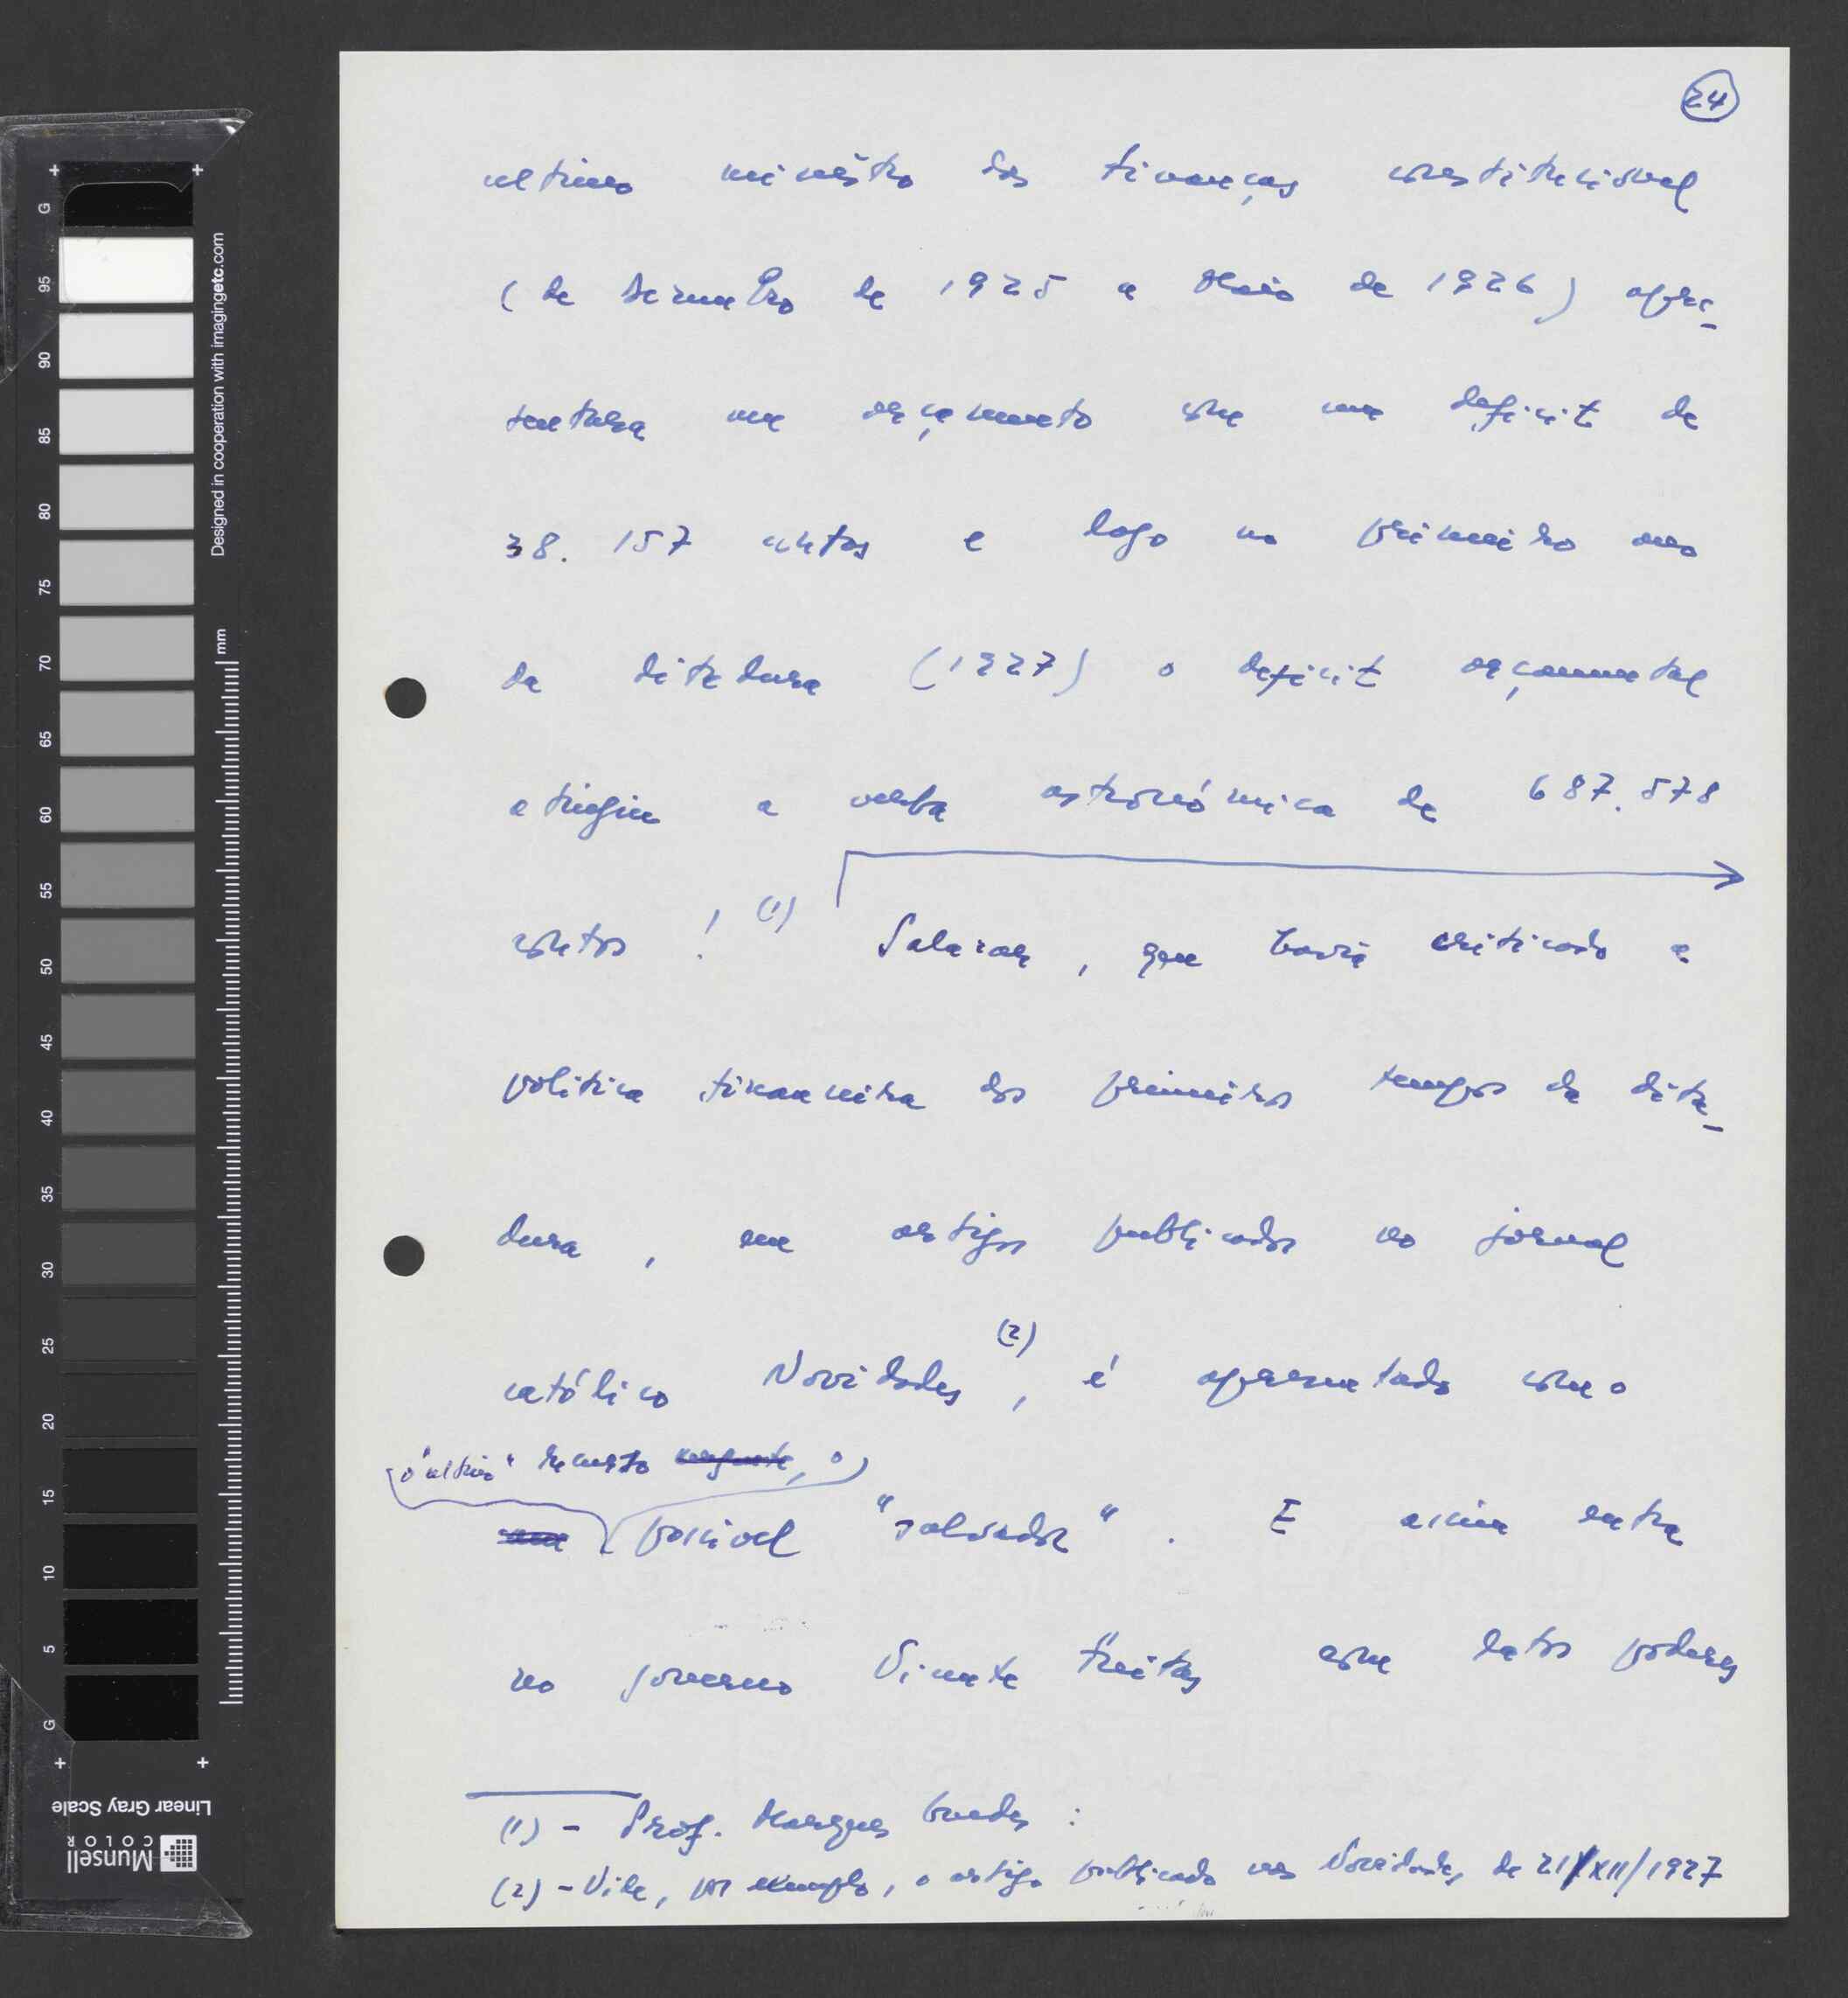 24
ultimo ministro das finanças constitucional
(de Dezembro de 1925 a Maio de 1926) apre-
sentara um orçamento com um deficit de
38.157 contos e logo no primeiro ano
da ditadura (1927) o deficit orçamental
atingiu a verba astronómica de 687.578
contos ! (1) Salazar, que havia criticado a
politica financeira dos primeiros tempos da dita-
dura, em artigos publicados no jornal
católico Novidades (2), é apresentado como
o "ultimo" recurso, o
possivel "salvador". E assim entra
no governo Vicente Freitas com latos poderes
(1) - Prof. Marques Guedes :
(2) - Vide, por exemplo, o artigo publicado nas Novidades, de 21/XII/1927
G 95 90 85 80 75 70 65 60 55 50 45 40 35 30 25 20 15 10 5 G
Designed in cooperation with imagingetc.com
mm
Linear Gray Scale
Munsell
COLOR